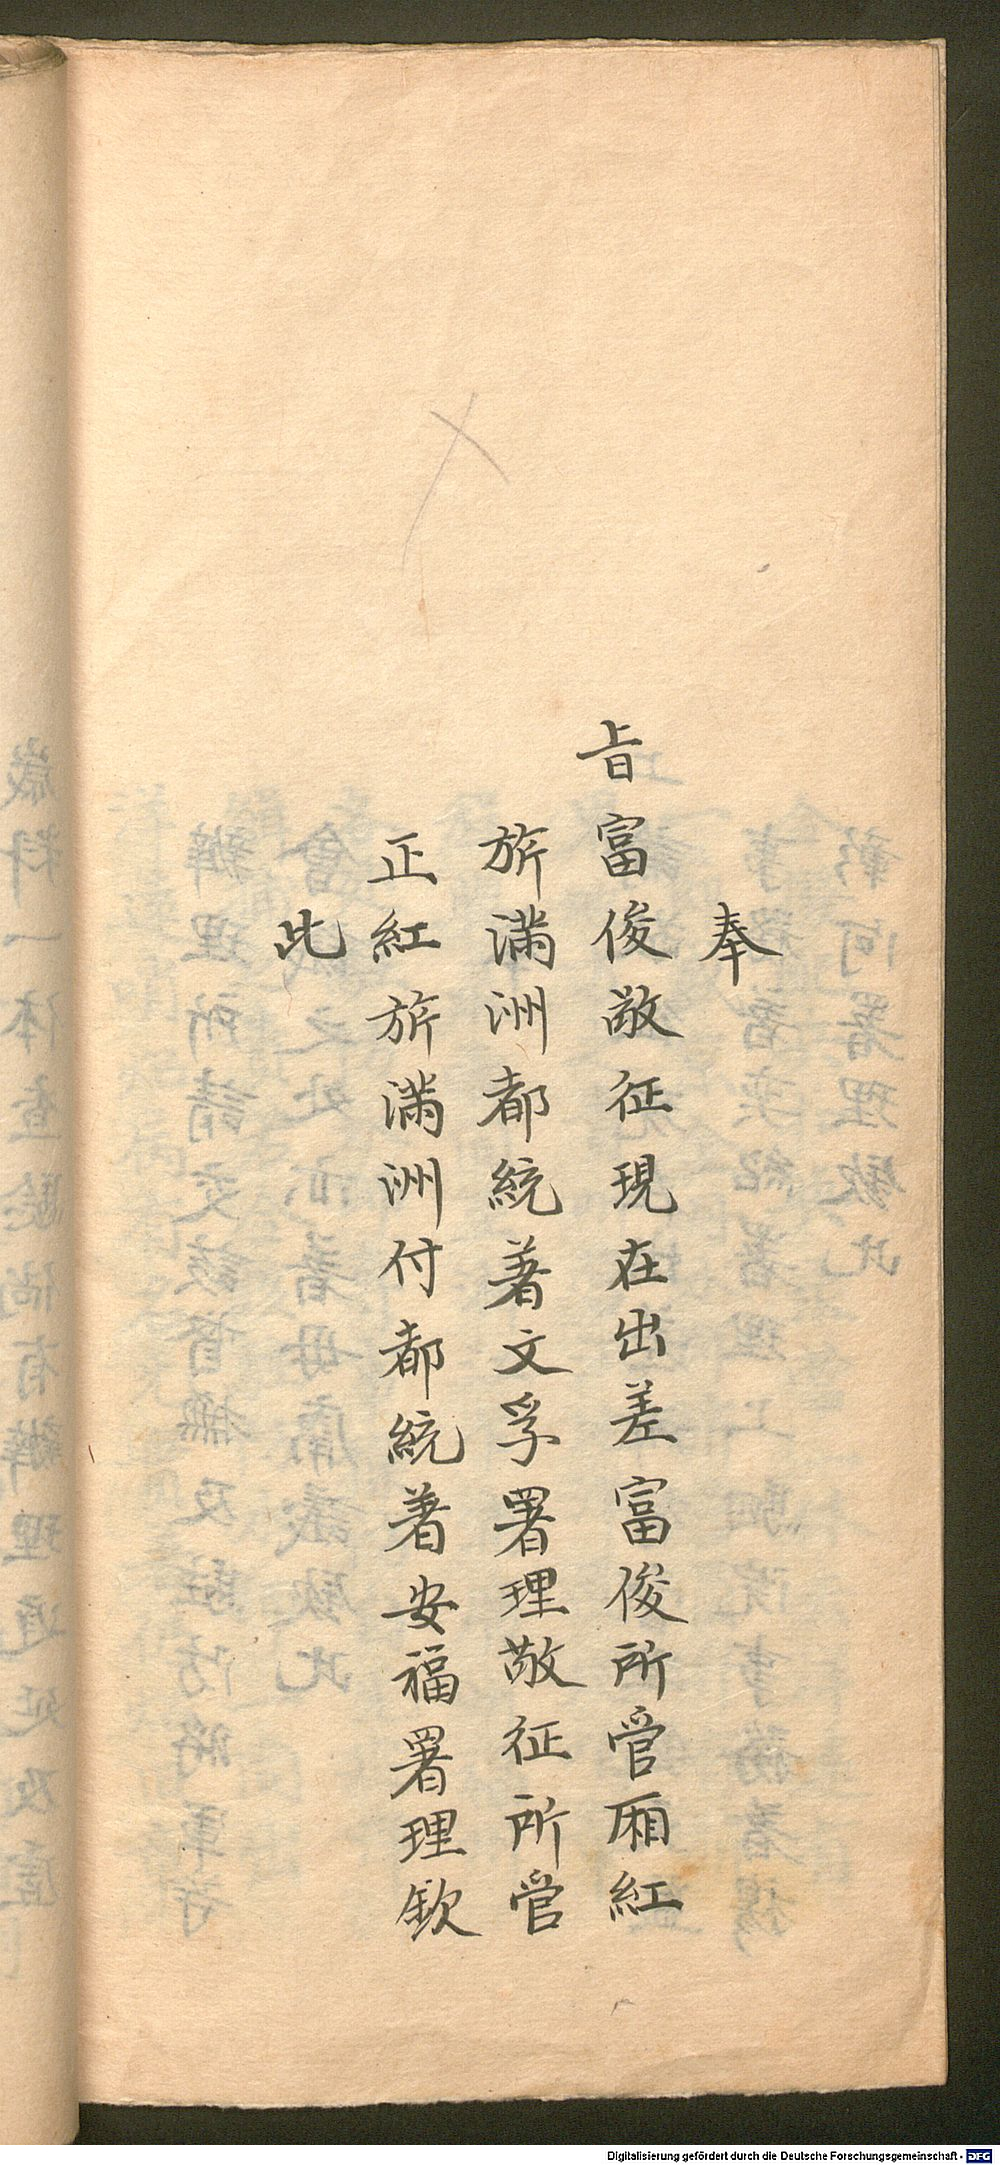 奉
旨富俊敬征現在出差富俊所管厢紅
旂滿洲都統著文孚署理敬征所管
正紅旂滿洲付都統著安福署理欽
此
Digitalisierung gefördert durch die Deutsche Forschungsgemeinschaft - DFG